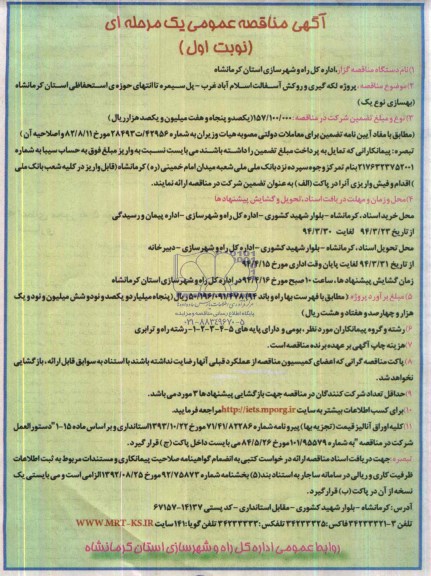 آگهی مناقصه عمومی یک مرحله ای
(نوبت اول)
۱)نام دستگاه مناقصه گزار:اداره کل راه و شهرسازی استان کرمانشاه
۲)موضوع مناقصه: پروژه لکه گیری و روکش آسفالت اسلام آباد غرب - پل سیمره تا انتهای حوزه ی استحفاظی استان کرمانشاه
(بهسازی نوع یک)
۳)نوع و مبلغ تضمین شرکت در مناقصه: ۱۵۷/۱۰۰/۰۰۰(یکصد و پنجاه و هفت میلیون و یکصد هزار ریال)
(مطابق با مفاد آیین نامه تضمین برای معاملات دولتی مصوبه هیات وزیران به شماره ۴۲۹۵۶/ت۲۸۴۹۳ مورخ ۸۲/۸/۱۱ و اصلاحیه آن)
تبصره: پیمانکارانی که تمایل به پرداخت مبلغ تضمین را داشته باشند می بایست نسبت به واریز مبلغ فوق به حساب سیبا به شماره
۲۱۷۶۳۲۳۷۵۲۰۰۱ بنام تمرکز وجوه سپرده نزد بانک ملی ملی شعبه میدان امام خمینی (ره) کرمانشاه (قابل واریز در کلیه شعب بانک ملی
)اقدام و فیش واریزی آنرا در پاکت (الف) به عنوان تضمین شرکت در مناقصه ارائه نمایند.
۴)محل و زمان و مهلت دریافت اسناد، تحویل و گشایش پیشنهادها
محل خرید اسناد: کرمانشاه - بلوار شهید کشوری - اداره کل راه و شهرسازی - اداره پیمان و رسیدگی
از تاریخ ۹۴/۳/۲۳ لغایت ۹۴/۳/۳۰
محل تحویل اسناد: کرمانشاه - بلوار شهید کشوری - اداره کل راه و شهرسازی - دبیرخانه
از تاریخ ۹۴/۳/۳۱ لغایت پایان وقت اداری مورخ ۹۴/۴/۱۵
زمان گشایش پیشنهاد ها: ساعت ۱۰ صبح مورخ ۹۴/۴/۱۶ در اداره کل راه و شهرسازی استان کرمانشاه
۵)مبلغ برآورد پروژه (مطابق با فهرست بها راه و باند ۹۴) ۵۰/۱۹۶/۰۹۱/۴۷۸ ریال (پنجاه میلیارد و یکصد و نود و شش میلیون و نود و یک
هزار و چهارصد و هفتاد و هشت ریال)
۶)رشته و گروه پیمانکاران مورد نظر: بومی و دارای پایه های ۵-۴-۳-۲-۱- رشته راه و ترابری
۷)هزینه چاپ آگهی بر عهده برنده مناقصه است.
۸)پاکت مناقصه گرانی که اعضای کمیسیون مناقصه از عملکرد قبلی آنها رضایت نداشته باشند با استناد به سوابق قابل ارائه، بازگشایی
نخواهد شد.
۹)حداقل تعداد شرکت کنندگان در مناقصه جهت بازگشایی پیشنهادها ۳ مورد می باشد.
۱۰)برای کسب اطلاعات بیشتر به سایت http://iets.mporg.ir مراجعه فرمایید.
۱۱)کلیه اوراق آنالیز قیمت (تجزیه بها) پیرو نامه شماره ۷۱/۴۱/۸۲۲۸۶ مورخ ۱۳۹۳/۱۰/۲۲ استانداری و بر اساس ماده ۱۵-۱ "دستورالعمل
شرکت در مناقصه" به شماره ۱۰۱/۹۵۵۷۹ مورخ ۸۴/۵/۲۶ می بایست داخل پاکت (ج) قرار گیرد.
تبصره: جهت دریافت اسناد مناقصه ارائه درخواست کتبی به انضمام گواهینامه صلاحیت پیمانکاری و مستندات مربوط به ثبت اطلاعات
ظرفیت کاری و ریالی در سامانه ساجار به استناد بند (۵) بخشنامه شماره ۹۲/۷۵۸۷۳ مورخ ۱۳۹۲/۰۸/۲۵ الزامی است و می بایستی یک
نسخه از آن در پاکت (ب) قرار گیرد.
آدرس: کرمانشاه - بلوار شهید کشوری - مقابل استانداری - کد پستی ۱۴۱۳۷-۶۷۱۵۷
تلفن ۳-۳۴۲۳۳۳۲۱ فاکس: ۳۴۲۳۳۳۲۵ تلفکس: ۳۴۲۳۳۳۲۳ تلفن گویا: ۱۴۱ سایت WWW.MRT-KS.IR
روابط عمومی اداره کل راه و شهرسازی استان کرمانشاه